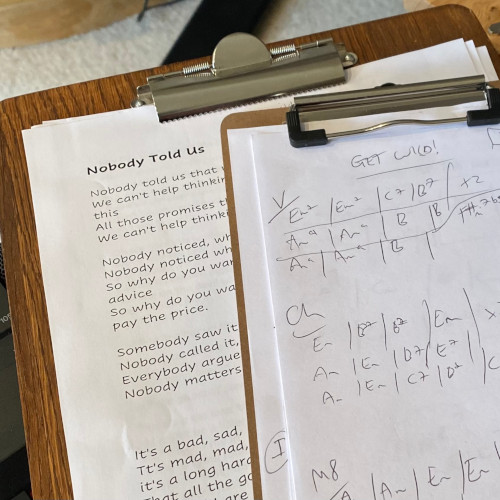 Nobody Told Us
Nobody told us that
We can't help thinkin
this
All those promises t
We can't help think
Nobody noticed, wh
Nobody noticed wh
So why do you wan
advice
So why do you wa
pay the price.
Somebody saw it
Nobody called it,
Everybody argue
Nobody matters
It's a bad, sad,
Tt's mad, mad,
it's a long hard
That all the go
are
GET WILD!
V
Em⁹ | Em⁹ | C7 | B7 | x2
Am⁹ | Am⁹ | B | B
Am⁹ | Am⁹ | B |
Ch
Em | B7 | B7 | Em | x
Am | Em | D7 | E7
Am | Em | C7 | D7 | C
I
M8
Am | Em | Em